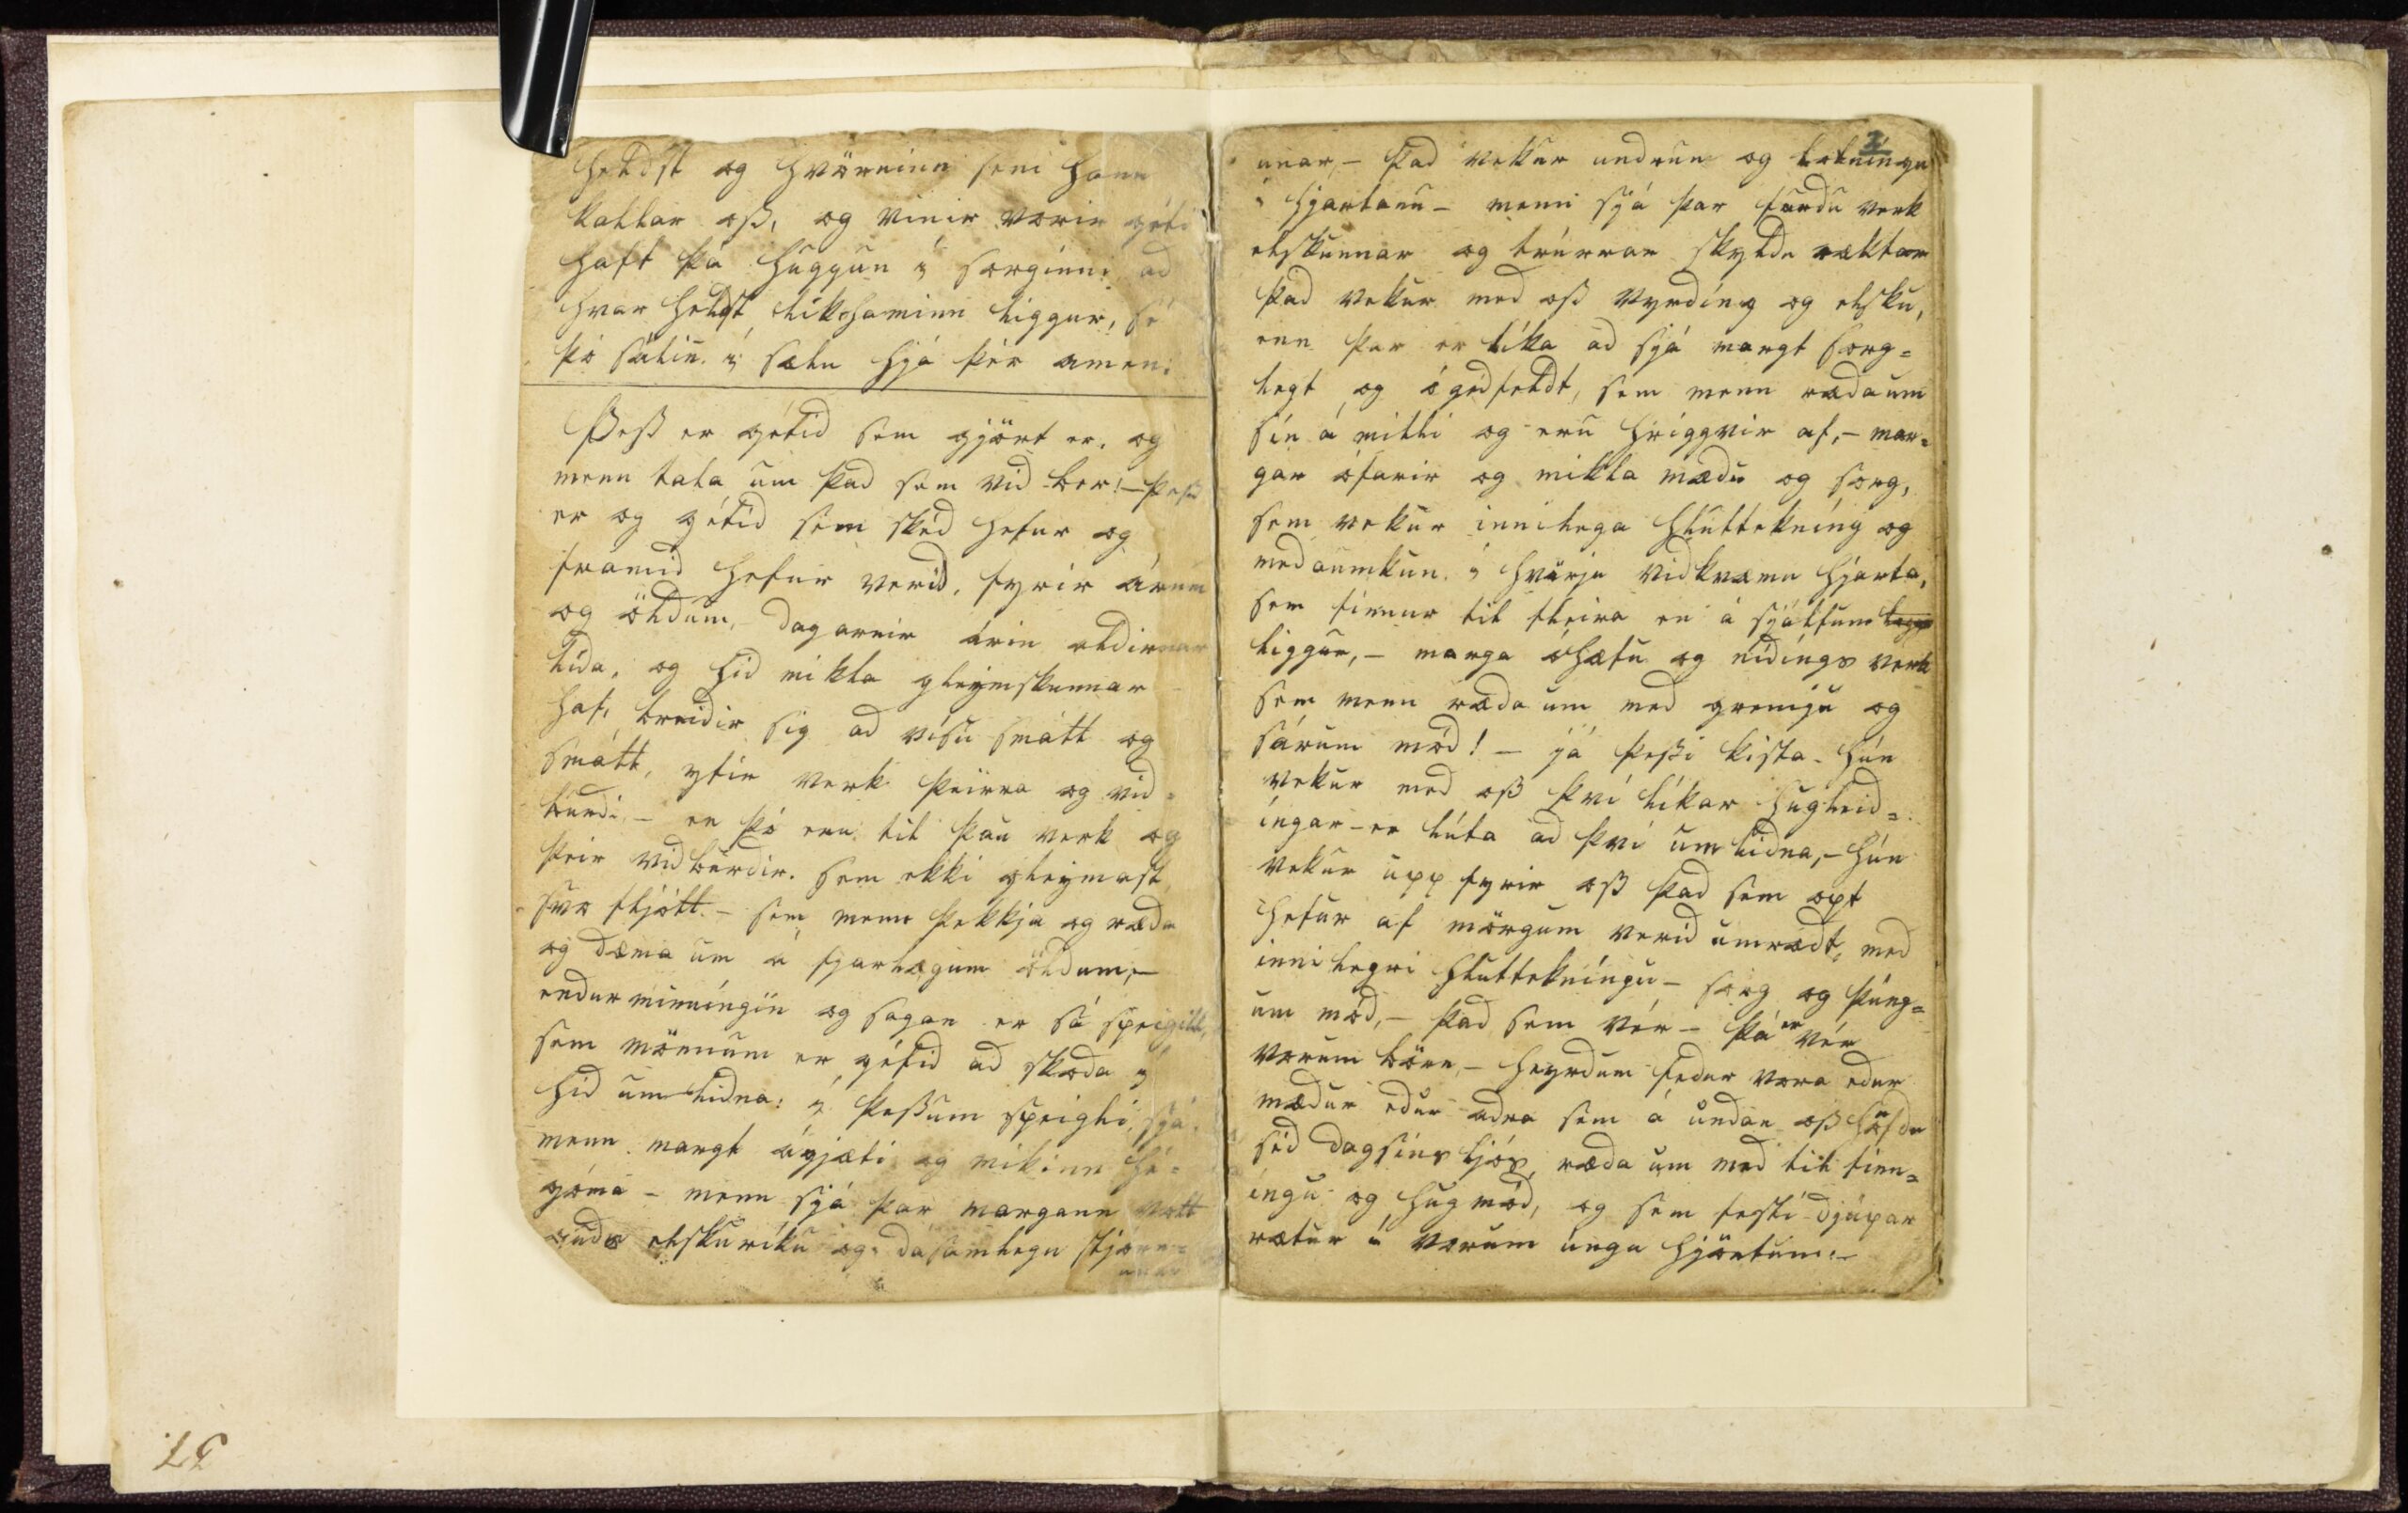 heldst og hvörninn sem hann
kallar oss, og vinir vorir géti
haft þá huggun í sorginni, að
hvar heldst líkhaminn liggur, sé
þó sálin í sælu hjá þér amen:
Þess er gétið sem gjört er, og
menn tala um það sem við ber! – þess
er og gétið sem skéð hefur og
framið hefur verið, fyrir árum
og öldum, – dagarnir árin aldirnar
líða, og hið mikla gleymskunnar
haf, breiðir sig að vísu smátt og
smátt, yfir verk þeirra og við=
burdi, – en þó eru til þau verk og
þeir viðburðir. sem ekki gleymast
svo fljótt. – sem menn þekkja og ræða
og dæma um á fjarlægum öldum, –
endurminníngin og sagan er sá speigill,
sem mönnum er géfið að skoða í
hið umliðna: í þessum speigli, sjá
menn margt ágjæti og mikinn hé=
góma – menn sjá þar margann vott
guðs elskuríku og dásamlegu stjórn=
unar
2
unar, – það vekur undrun og lotníngu
í hjartanu – menn sjá þar furdu verk
elskunnar og trúrrar skyldu ræktar
það vekur með oss vyrðíng og elsku,
enn þar er líka að sjá margt sorg=
legt og ógéðfeldt, sem menn ræða um
sín á milli og eru hriggvir af, – mar=
gar ófarir og mikla mæðu og sorg,
sem vekur innilega hluttekníng og
meðaumkun í hvörju viðkvæmu hjarta,
sem finnur til fleira en á sjálfum
liggur, – marga óhæfu og níðíngs verk
sem menn ræða um með gremju og
sárum móð! – já þessi kista – hún
vekur með oss því líkar hugleið=
íngar – er lúta að því umliðna, – hún
vekur upp fyrir oss það sem opt
hefur af mörgum verið umrædt, með
innilegri hluttekníngu – sorg og þúng=
um móð, – það sem vér – þá er vér
vorum börn, – heyrðum feður vora eður
mæður eður aðra sem á undan oss höfðu
séð dagsins ljós, ræða um með til finn=
íngu og hugmóð, og sem festi djúpar
rætur í vorum úngu hjörtum: –
37.